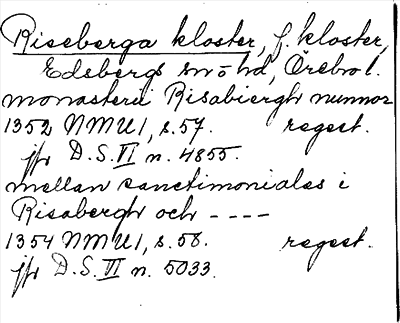 Riseberga kloster, f. kloster,
Edsbergs sn o hd, Örebro l.
monasterii Risabiergh nunnor
1352 NMU1, s. 57. regest.
jfr D.S. VI n. 4855.
mellan sanctimoniales i
Risabergh och ----
1354 NMU1, s. 58. regest.
jfr D.S. VI n. 5033.